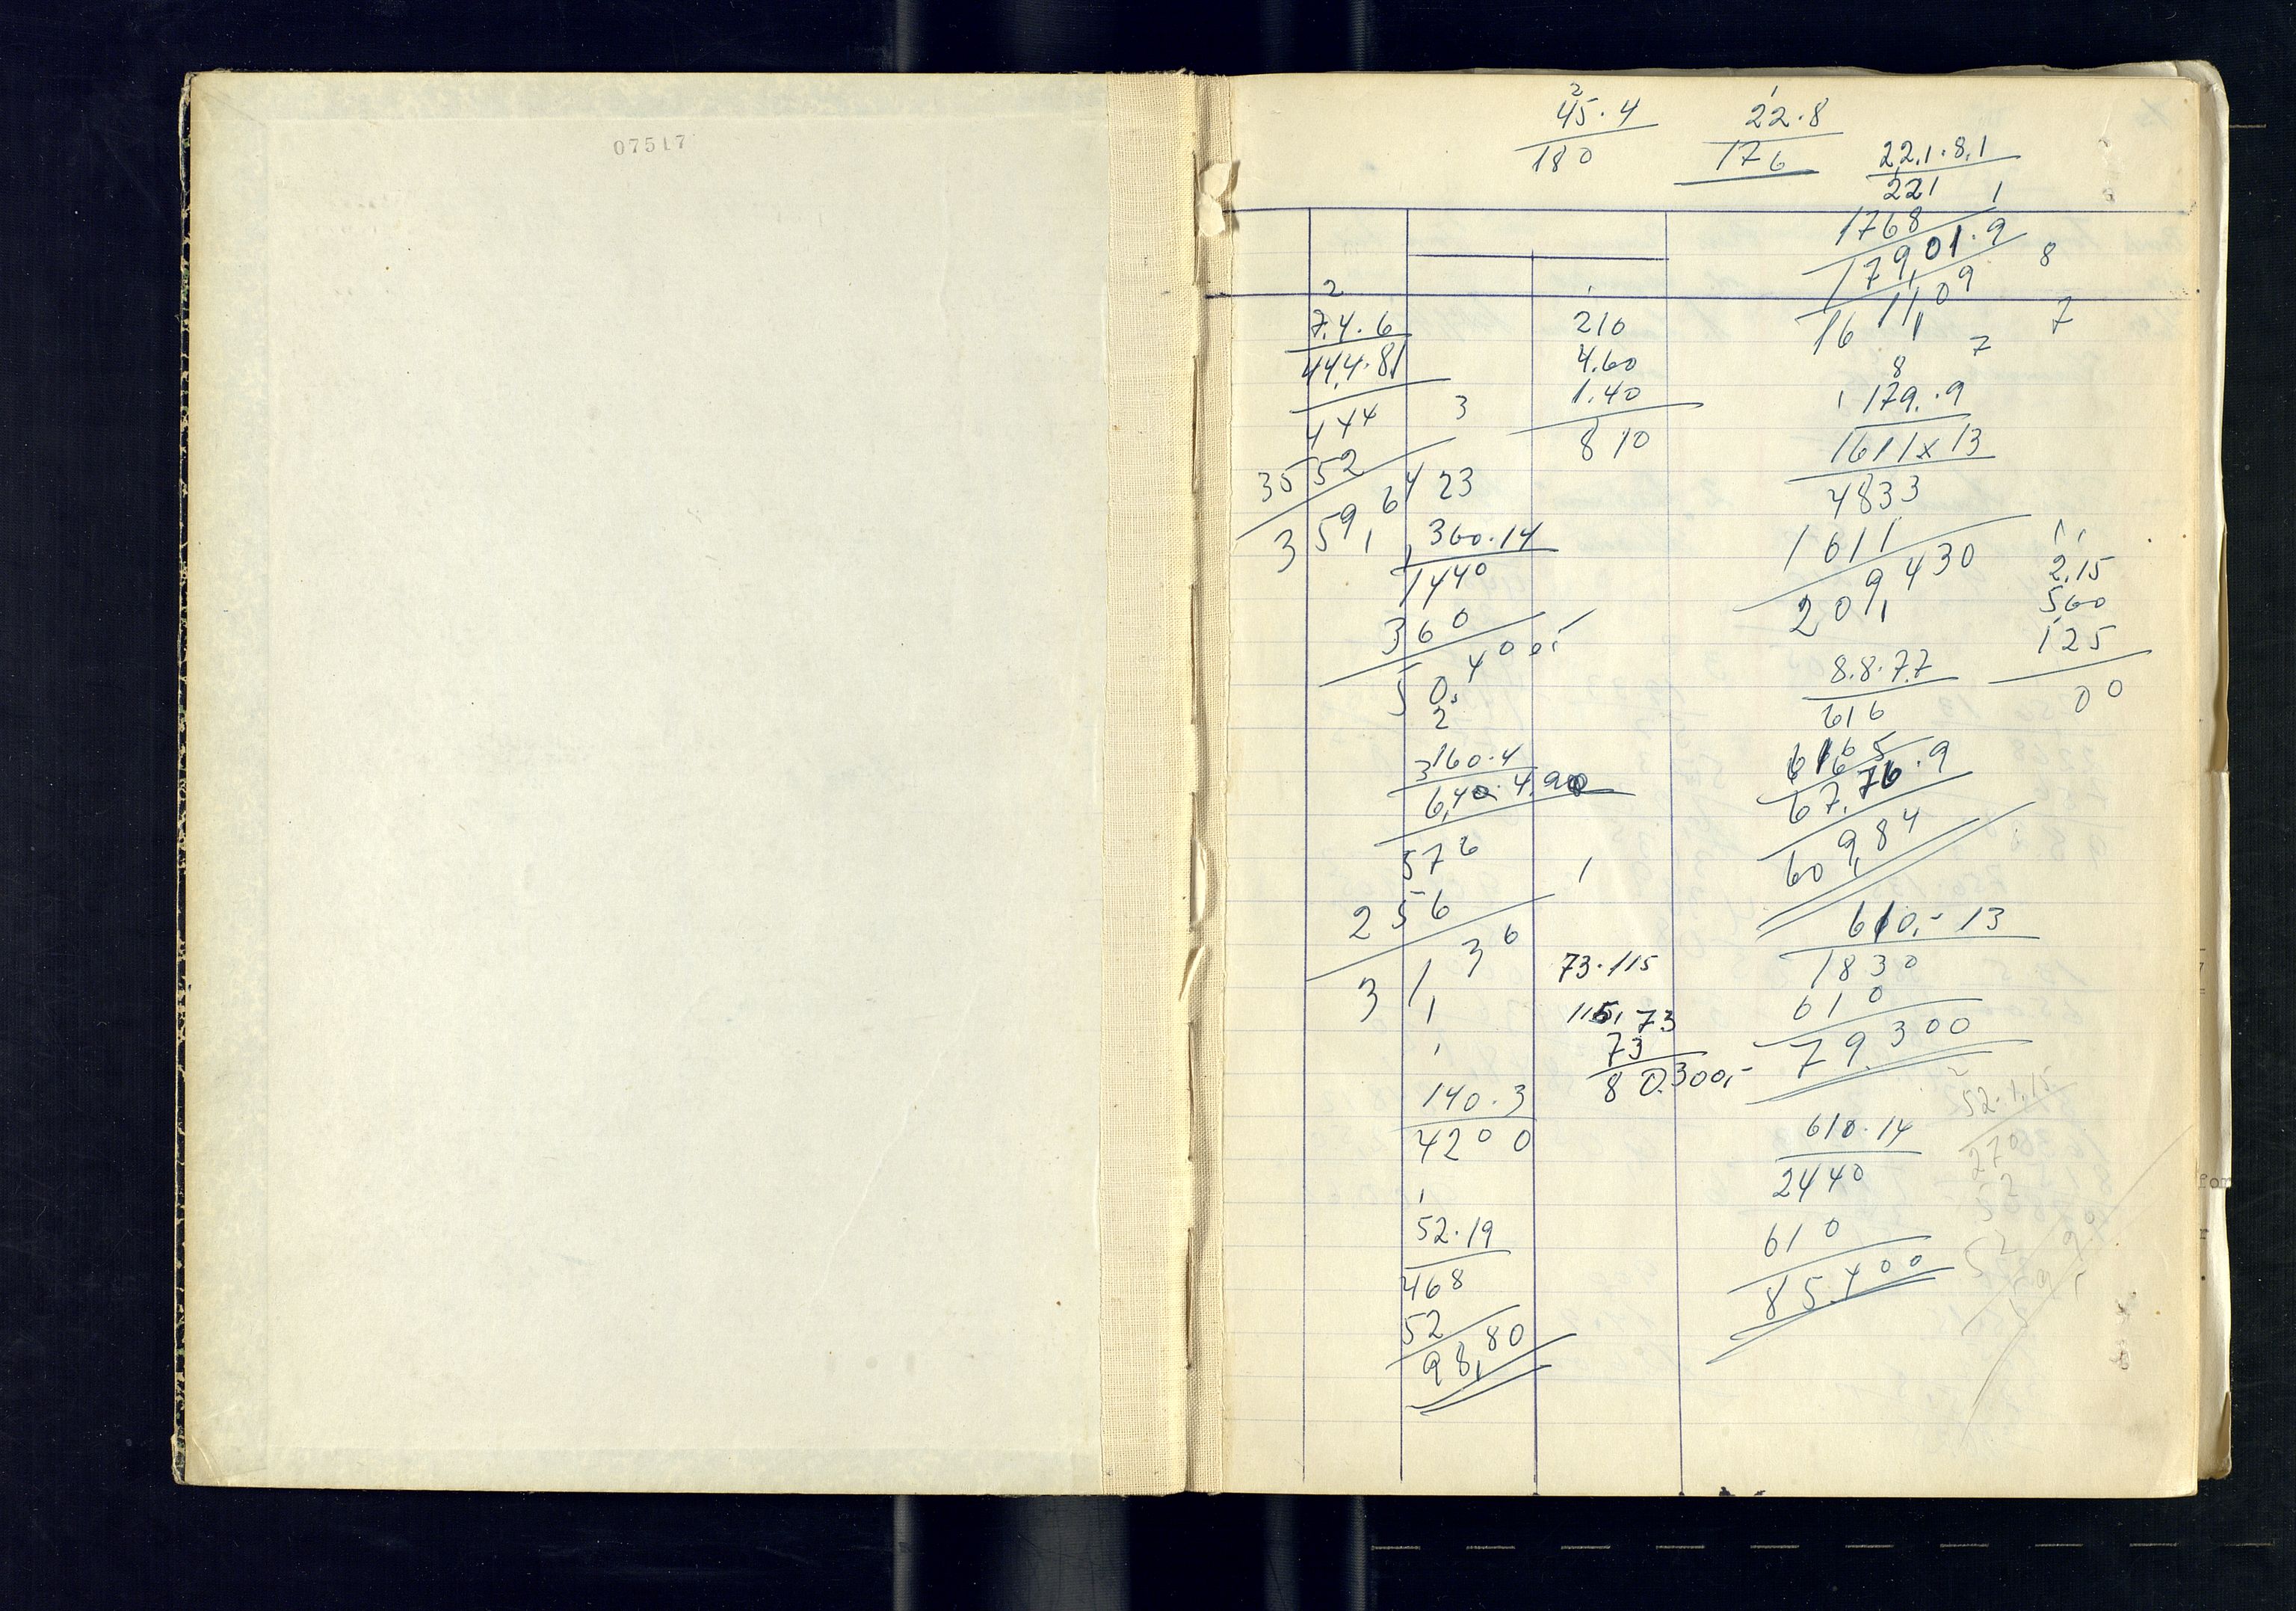 07517
2
45.4
180
1
22.8
176
22,1.8,1
221
1768
1
17901.9
1611,09
8
7
2
7.4.6
44,4.81
444
3552
3
359,6
1
210
4.60
1.40
810
7
8
1 179.9
1611x13
4833
1611
209,430
423
360.14
1440
360
50.400,-
1 1
2,15
5,60
125
00
8.8.7.7
616
616
67.76.9
609,84
2
3160.4
6,40.4,90
576
256
3136
1
610,- 13
1830
610
79.300
73.115
115,73
73
80.300,-
140.3
4200
610.14
2440
610
85.400
2
52.1,15
270
52
52
1
52.19
468
52
98,80